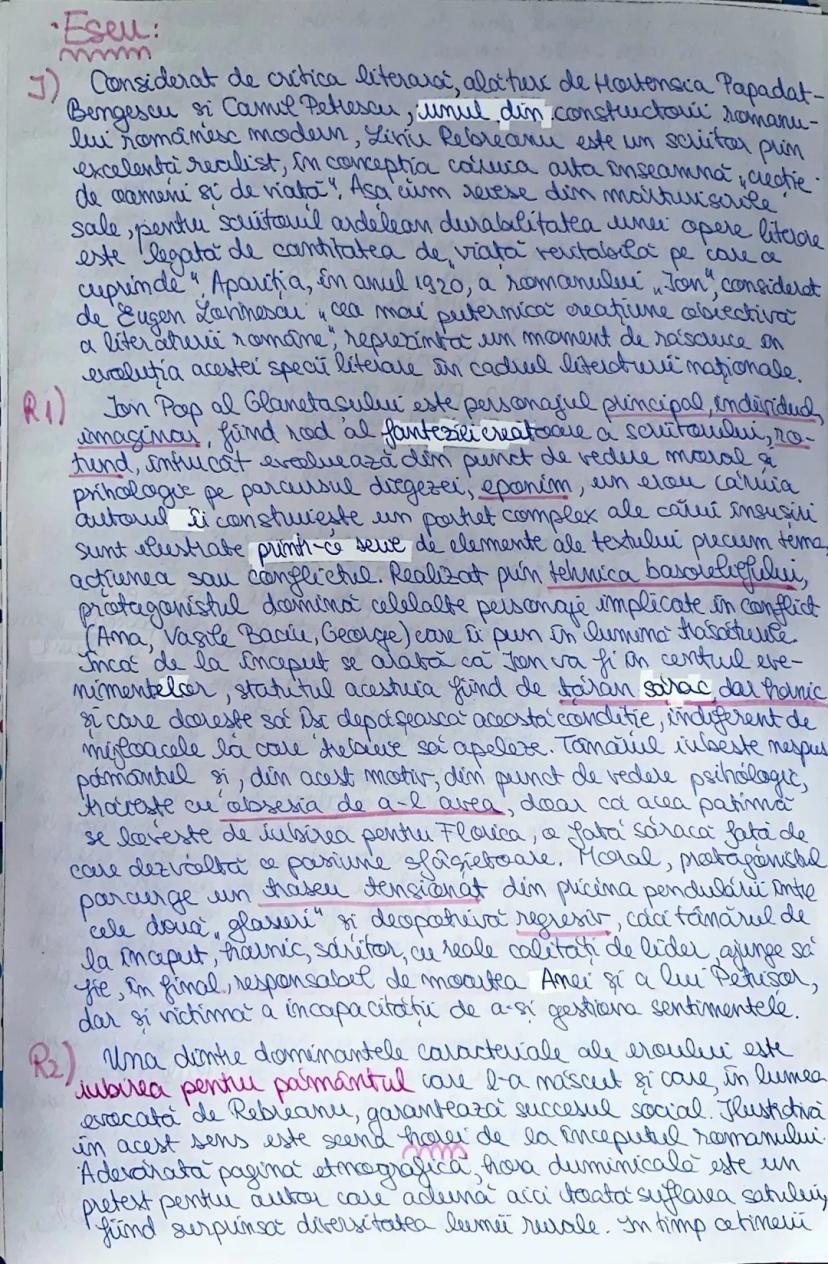 ·Eseu:
I) Considerat de critica literară, alături de Hortensia Papadat-
Bengescu și Camil Petrescu, unul din constructorii romanu-
lui românesc modern, Liviu Rebreanu este un scriitor prin
excelență realist, în concepția căruia arta înseamnă „creație
de oameni și de viață". Așa cum reiese din mărturisirile
sale, pentru scriitorul ardelean durabilitatea unei opere literare
este legată de cantitatea de „viață veritabilă pe care o
cuprinde". Apariția, în anul 1920, a romanului „Ion", considerat
de Eugen Lovinescu „cea mai puternică creațiune obiectivă
a literaturii române", reprezintă un moment de răscruce în
evoluția acestei specii literare în cadrul literaturii naționale.
R1) Ion Pop al Glanetașului este personajul principal, individual,
imaginar, fiind rod al fanteziei creatoare a scriitorului, ro-
tund, întrucât evoluează din punct de vedere moral și
psihologic pe parcursul diegezei, eponim, un erou căruia
autorul îi construiește un portret complex ale cărui însușiri
sunt ilustrate printr-o serie de elemente ale textului precum tema,
acțiunea sau conflictul. Realizat prin tehnica basoreliefului,
protagonistul domină celelalte personaje implicate în conflict
(Ana, Vasile Baciu, George) care îi pun în lumină trăsăturile.
Încă de la început se arată că Ion va fi în centrul eve-
nimentelor, statutul acestuia fiind de țăran sărac, dar harnic
și care dorește să își depășească această condiție, indiferent de
mijloacele la care trebuie să apeleze. Tânărul iubește nespus
pământul și, din acest motiv, din punct de vedere psihologic,
trăiește cu obsesia de a-l avea, doar că acea patimă
se lovește de iubirea pentru Florica, o fată săracă față de
care dezvoltă o pasiune sfâșietoare. Moral, protagonistul
parcurge un traseu tensionat din pricina pendulării între
cele două „glasuri" și deopotrivă regresiv, căci tânărul de
la început, harnic, săritor, cu reale calități de lider, ajunge să
fie, în final, responsabil de moartea Anei și a lui Petrișor,
dar și victimă a incapacității de a-și gestiona sentimentele.
R2) Una dintre dominantele caracteriale ale eroului este
iubirea pentru pământul care l-a născut și care, în lumea
evocată de Rebreanu, garantează succesul social. Ilustrativă
în acest sens este scena horei de la începutul romanului.
Adevărată pagină etnografică, hora duminicală este un
pretext pentru autor care adună aici toată suflarea satului,
fiind surprinsă diversitatea lumii rurale. În timp ce tinerii